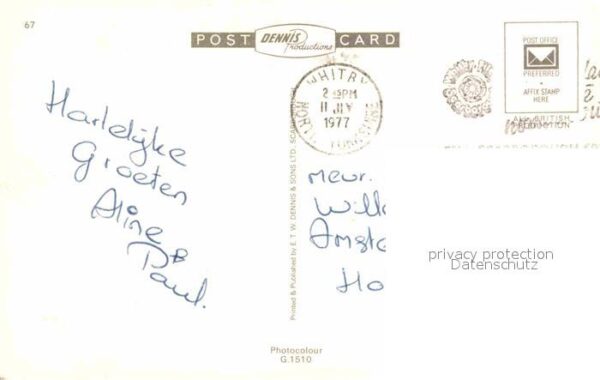 67
POST DENNIS Productions CARD
WHITBY
2 45PM
11 JLY
1977
YORKSHIRE
POST OFFICE
PREFERRED
AFFIX STAMP
HERE
ALL BRITISH
PRODUCTION
Hartelijke
Groeten
Aline
&
Paul.
Printed & Published by E. T. W. DENNIS & SONS LTD., SCARBOROUGH
Mevr.
Will
Amste
Ho
privacy protection
Datenschutz
Photocolour
G.1510